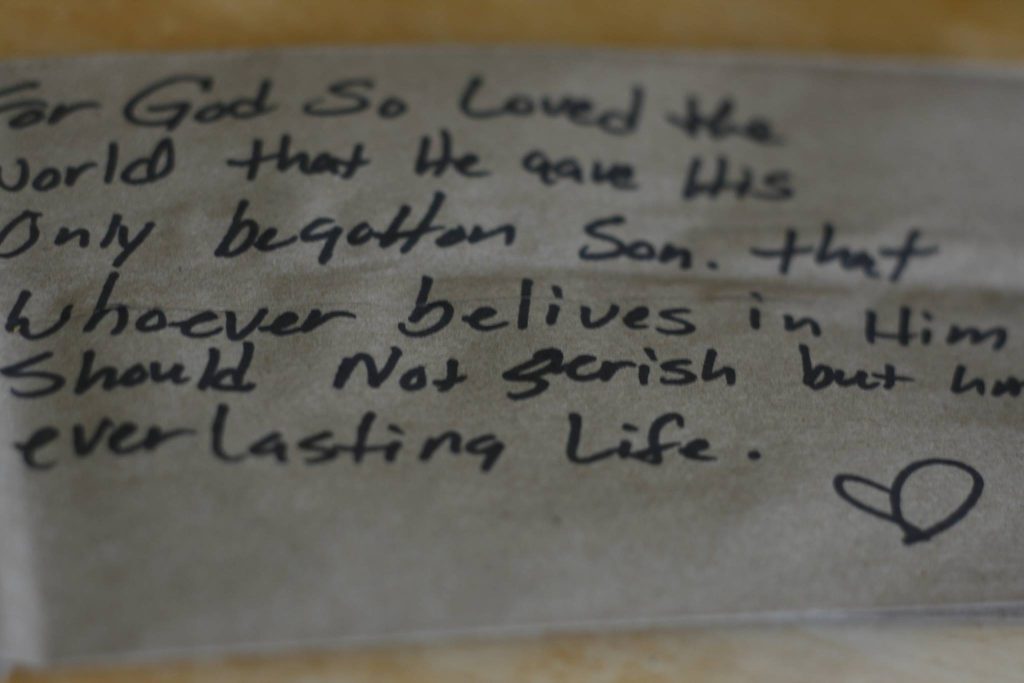 For God So Loved the
world that He gave His
Only begotton Son. that
Whoever belives in Him
Should Not perish but
everlasting Life.